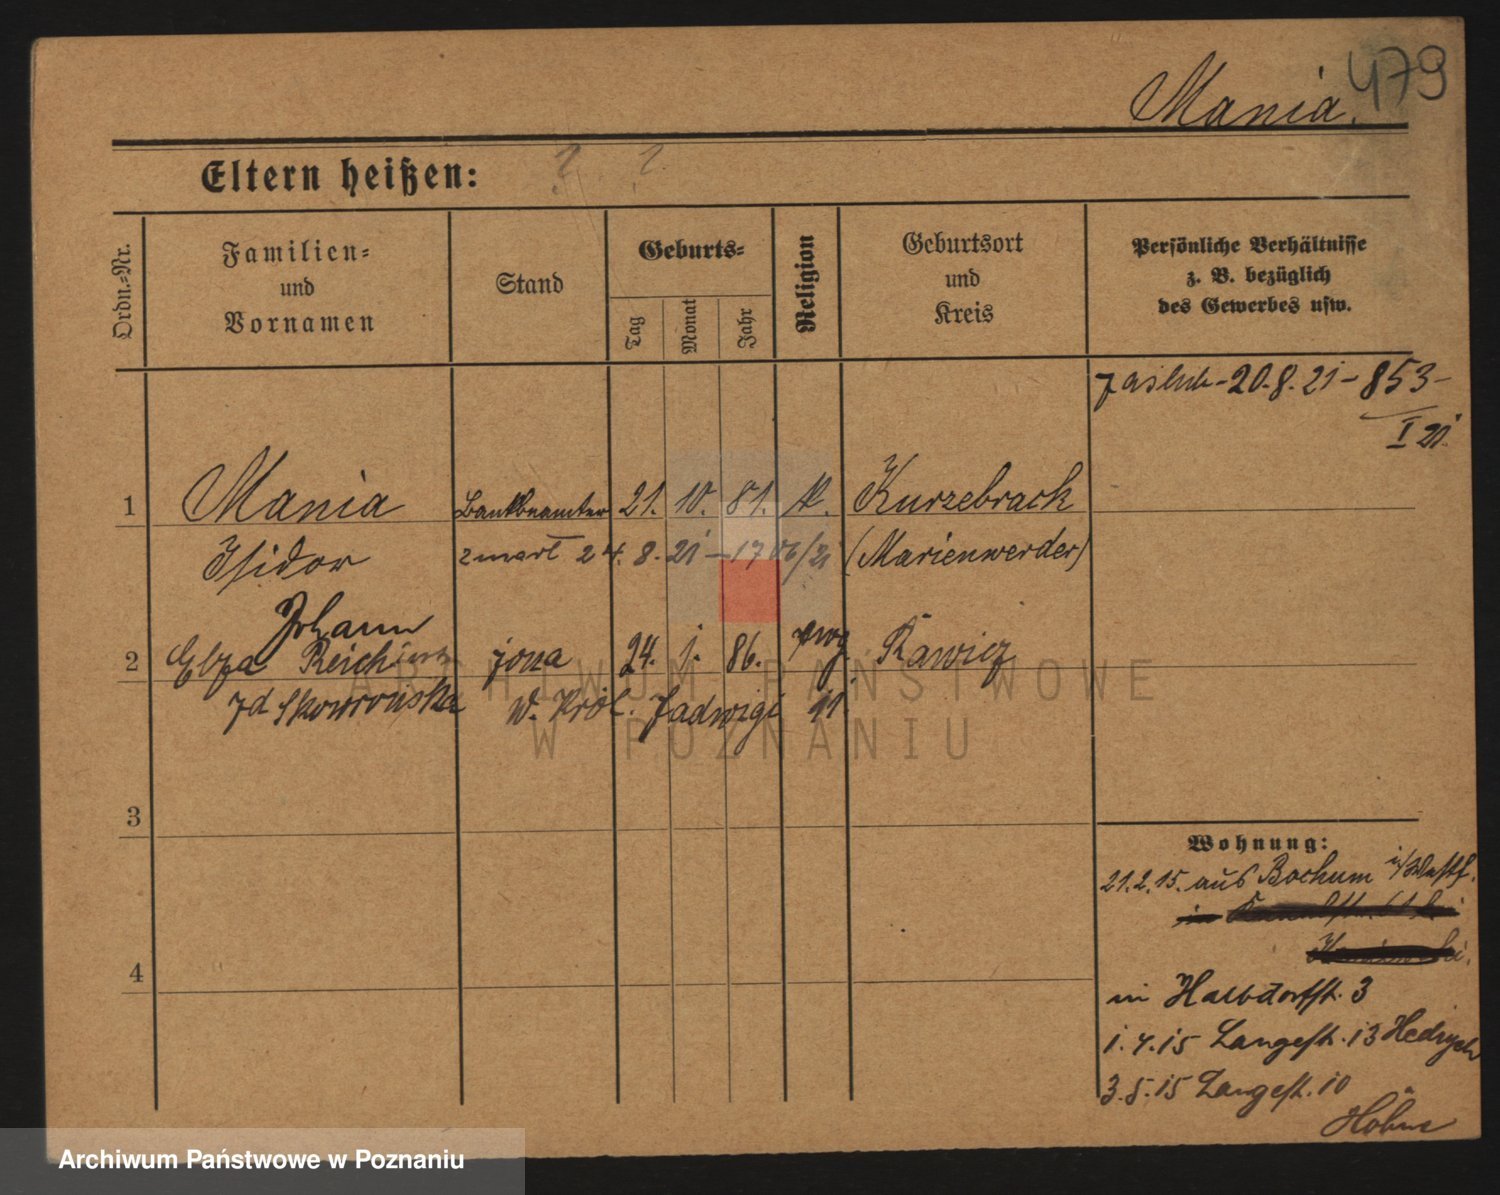 Mania. 479
Eltern heißen: ? ?
Ordn.-Nr.
Familien-
und
Vornamen
Stand
Geburts-
Tag
Monat
Jahr
Religion
Geburtsort
und
Kreis
Persönliche Verhältnisse
z. B. bezüglich
des Gewerbes usw.
zaślub - 20.8.21 - 853 -
I 21.
1 Mania Bankbeamter 21. 10. 81. k. Kurzebrack
Isidor zmarł 24.8.21 - 1706/21 (Marienwerder)
Johann
2 Elza żona 24. 1. 86. Rawicz
zd Skowrońska w. Król. Jadwigi 11
3
4
Wohnung:
21.2.15. aus Bochum i/Westf.
in Halbdorfstr. 3
1.4.15 Langestr. 13
3.5.15 Langestr. 10
Höhne
ARCHIWUM PAŃSTWOWE
W POZNANIU
Archiwum Państwowe w Poznaniu